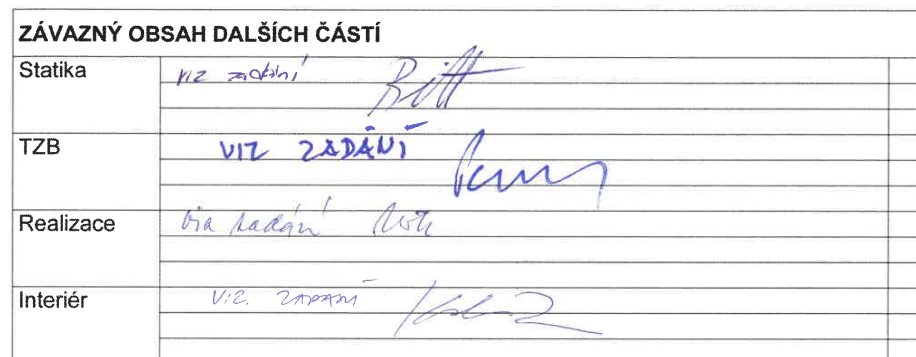 ZÁVAZNÝ OBSAH DALŠÍCH ČÁSTÍ
Statika viz zadání
TZB VIZ ZADÁNÍ
Realizace viz zadání
Interiér VIZ. ZADÁNÍ